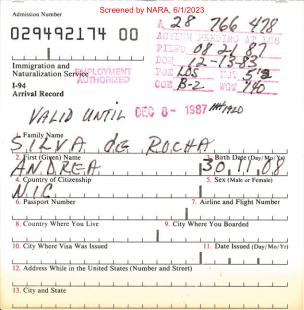 Screened by NARA, 6/1/2023
Admission Number
A 28 766 478
029492174 00
ASYLUM PENDING AT LOS
FILED 08 21 87
Immigration and
Naturalization Service
EMPLOYMENT
AUTHORIZED
DOE 12-13-83
POE LOS
I-94
Arrival Record
COE B-2
VALID UNTIL DEC 8 - 1987
1. Family Name
SILVA de ROCHA
2. First (Given) Name
3. Birth Date (Day/Mo/Yr)
ANDREA 30.11.08
4. Country of Citizenship
5. Sex (Male or Female)
NIC.
6. Passport Number
7. Airline and Flight Number
8. Country Where You Live
9. City Where You Boarded
10. City Where Visa Was Issued
11. Date Issued (Day/Mo/Yr)
12. Address While in the United States (Number and Street)
13. City and State